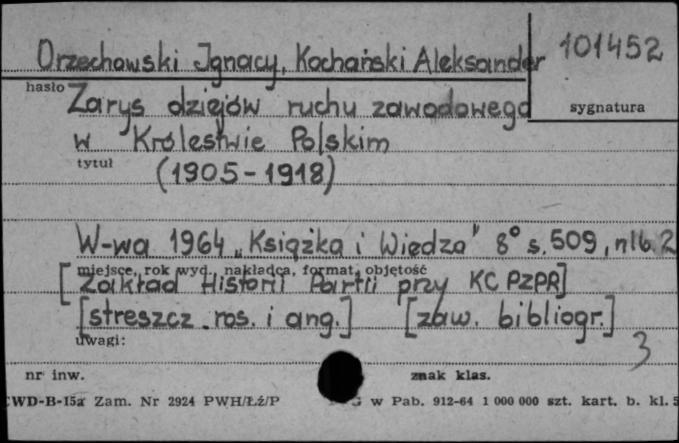 Orzechowski Ignacy, Kochański Aleksander
101452
hasło
Zarys dziejów ruchu zawodowego
sygnatura
w Królestwie Polskim
tytuł
(1905-1918)
W-wa 1964 „Książka i Wiedza" 8° s. 509, nlb. 2
miejsce, rok wyd., nakładca, format, objętość
[Zakład Historii Partii przy KC PZPR]
[streszcz. ros. i ang.] [zaw. bibliogr.]
uwagi:
3
nr inw.
znak klas.
CWD-B-15a Zam. Nr 2924 PWH/Łź/P
w Pab. 912-64 1 000 000 szt. kart. b. kl. 5